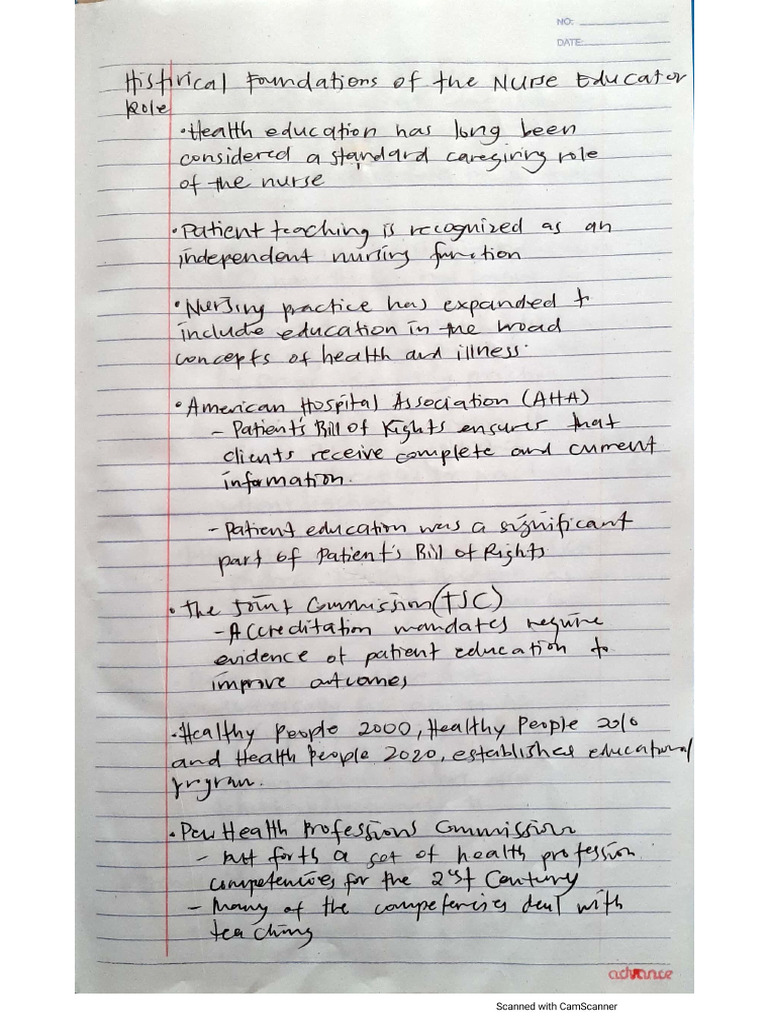 NO:
DATE:
Histirical Foundations of the Nurse Educator
Role
• Health education has long been
considered a standard caregiving role
of the nurse
• Patient teaching is recognized as an
independent nursing function
• Nursing practice has expanded t
include education in the broad
concepts of health and illness.
• American Hospital Association (AHA)
- Patient's Bill of Rights ensures that
clients receive complete and current
information.
- Patient education was a significant
part of Patient's Bill of Rights
• The Joint Commission (TJC)
- Accreditation mandates require
evidence of patient education to
improve outcomes
• Healthy People 2000, Healthy People 2010
and Health People 2020, establishes educational
program.
• Pew Health Professions Commission
- put forth a set of health profession
competencies for the 21st Century
- Many of the competencies deal with
teaching
advance
Scanned with CamScanner